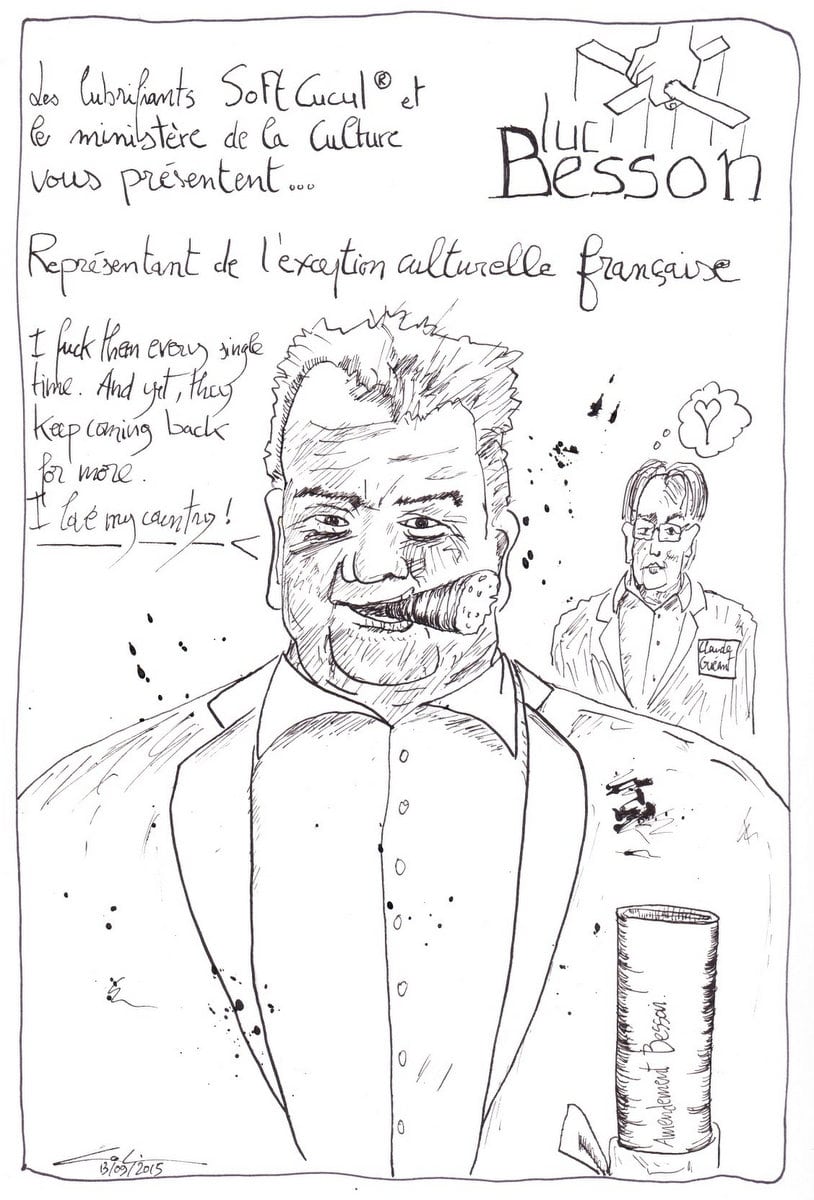 Les lubrifiants Soft Cucul® et
le ministère de la Culture
vous présentent...
luc
Besson
Représentant de l'exception culturelle française
I fuck them every single
time. And yet, they
keep coming back
for more.
I love my country!
Claude
Guéant
Amendement Besson
13/09/2015